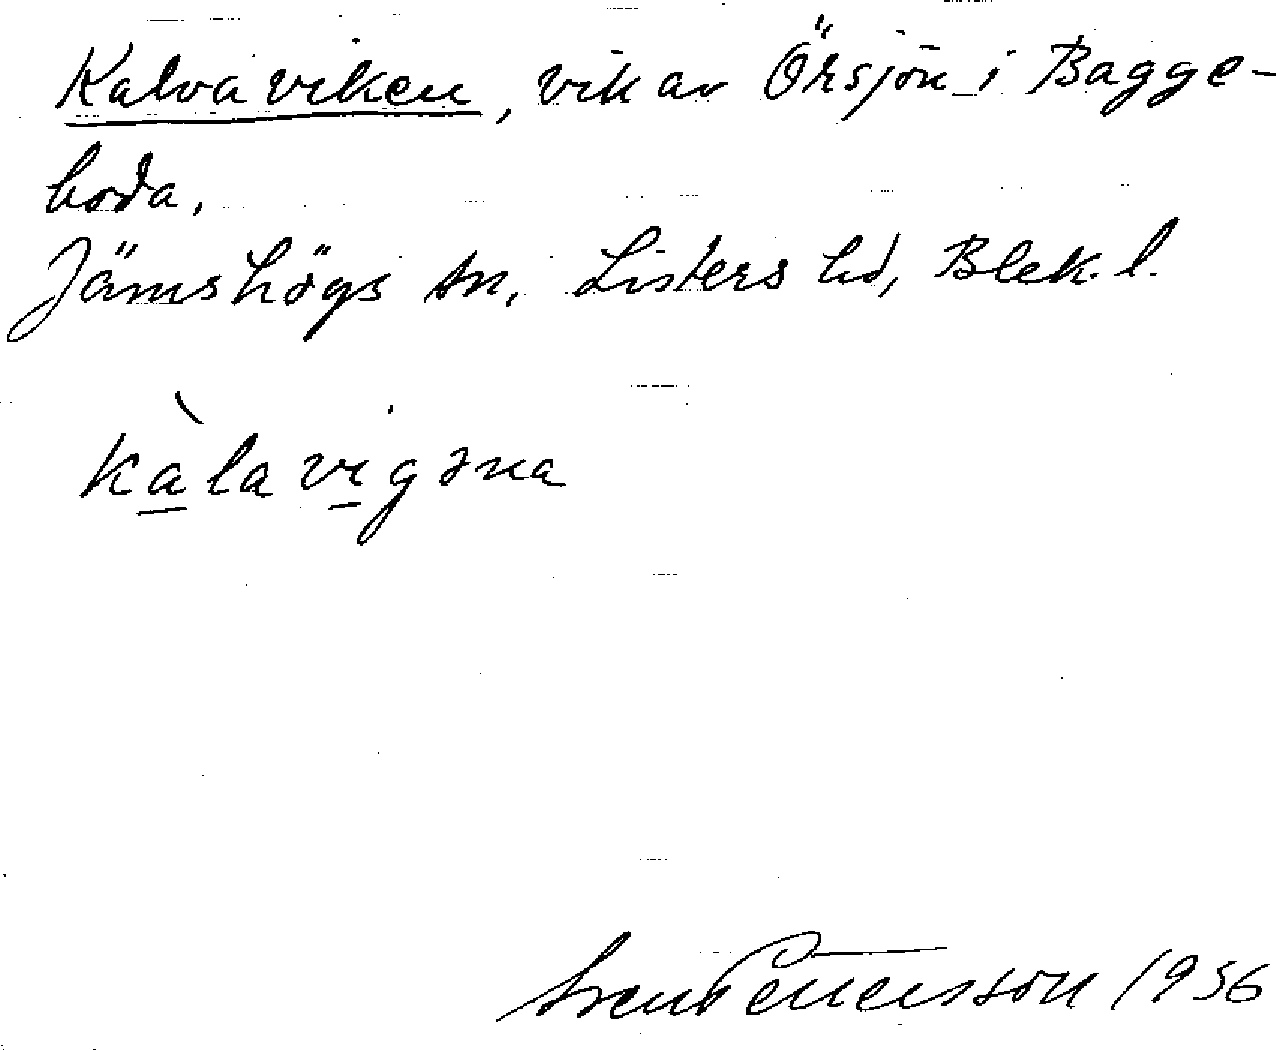 Kalvaviken, vik av Örsjön i Bagge-
boda.
Jämshögs sn, Listers hd, Blek. l.
kàlavigəna
Sven Pettersson 1956